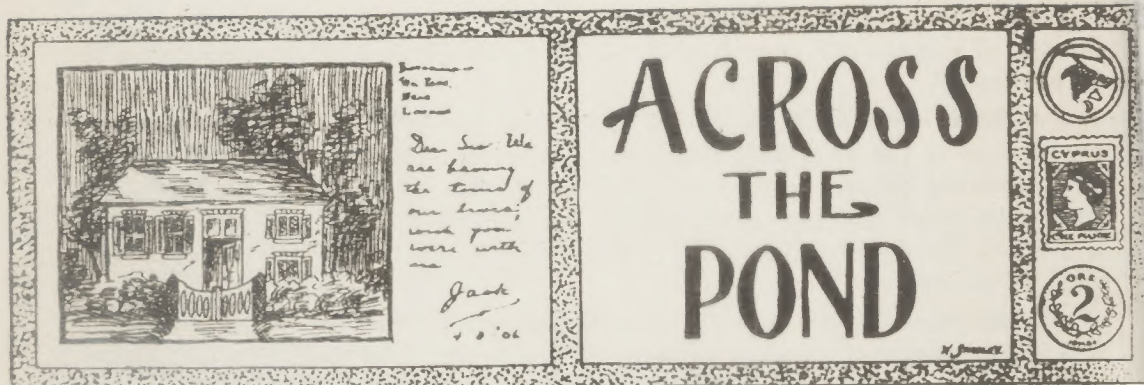 Dear Sir: We
are having
the times of
our lives,
wish you
were with
us
Jack
'06
ACROSS
THE
POND
CYPRUS
ONE PIASTRE
ORE
2